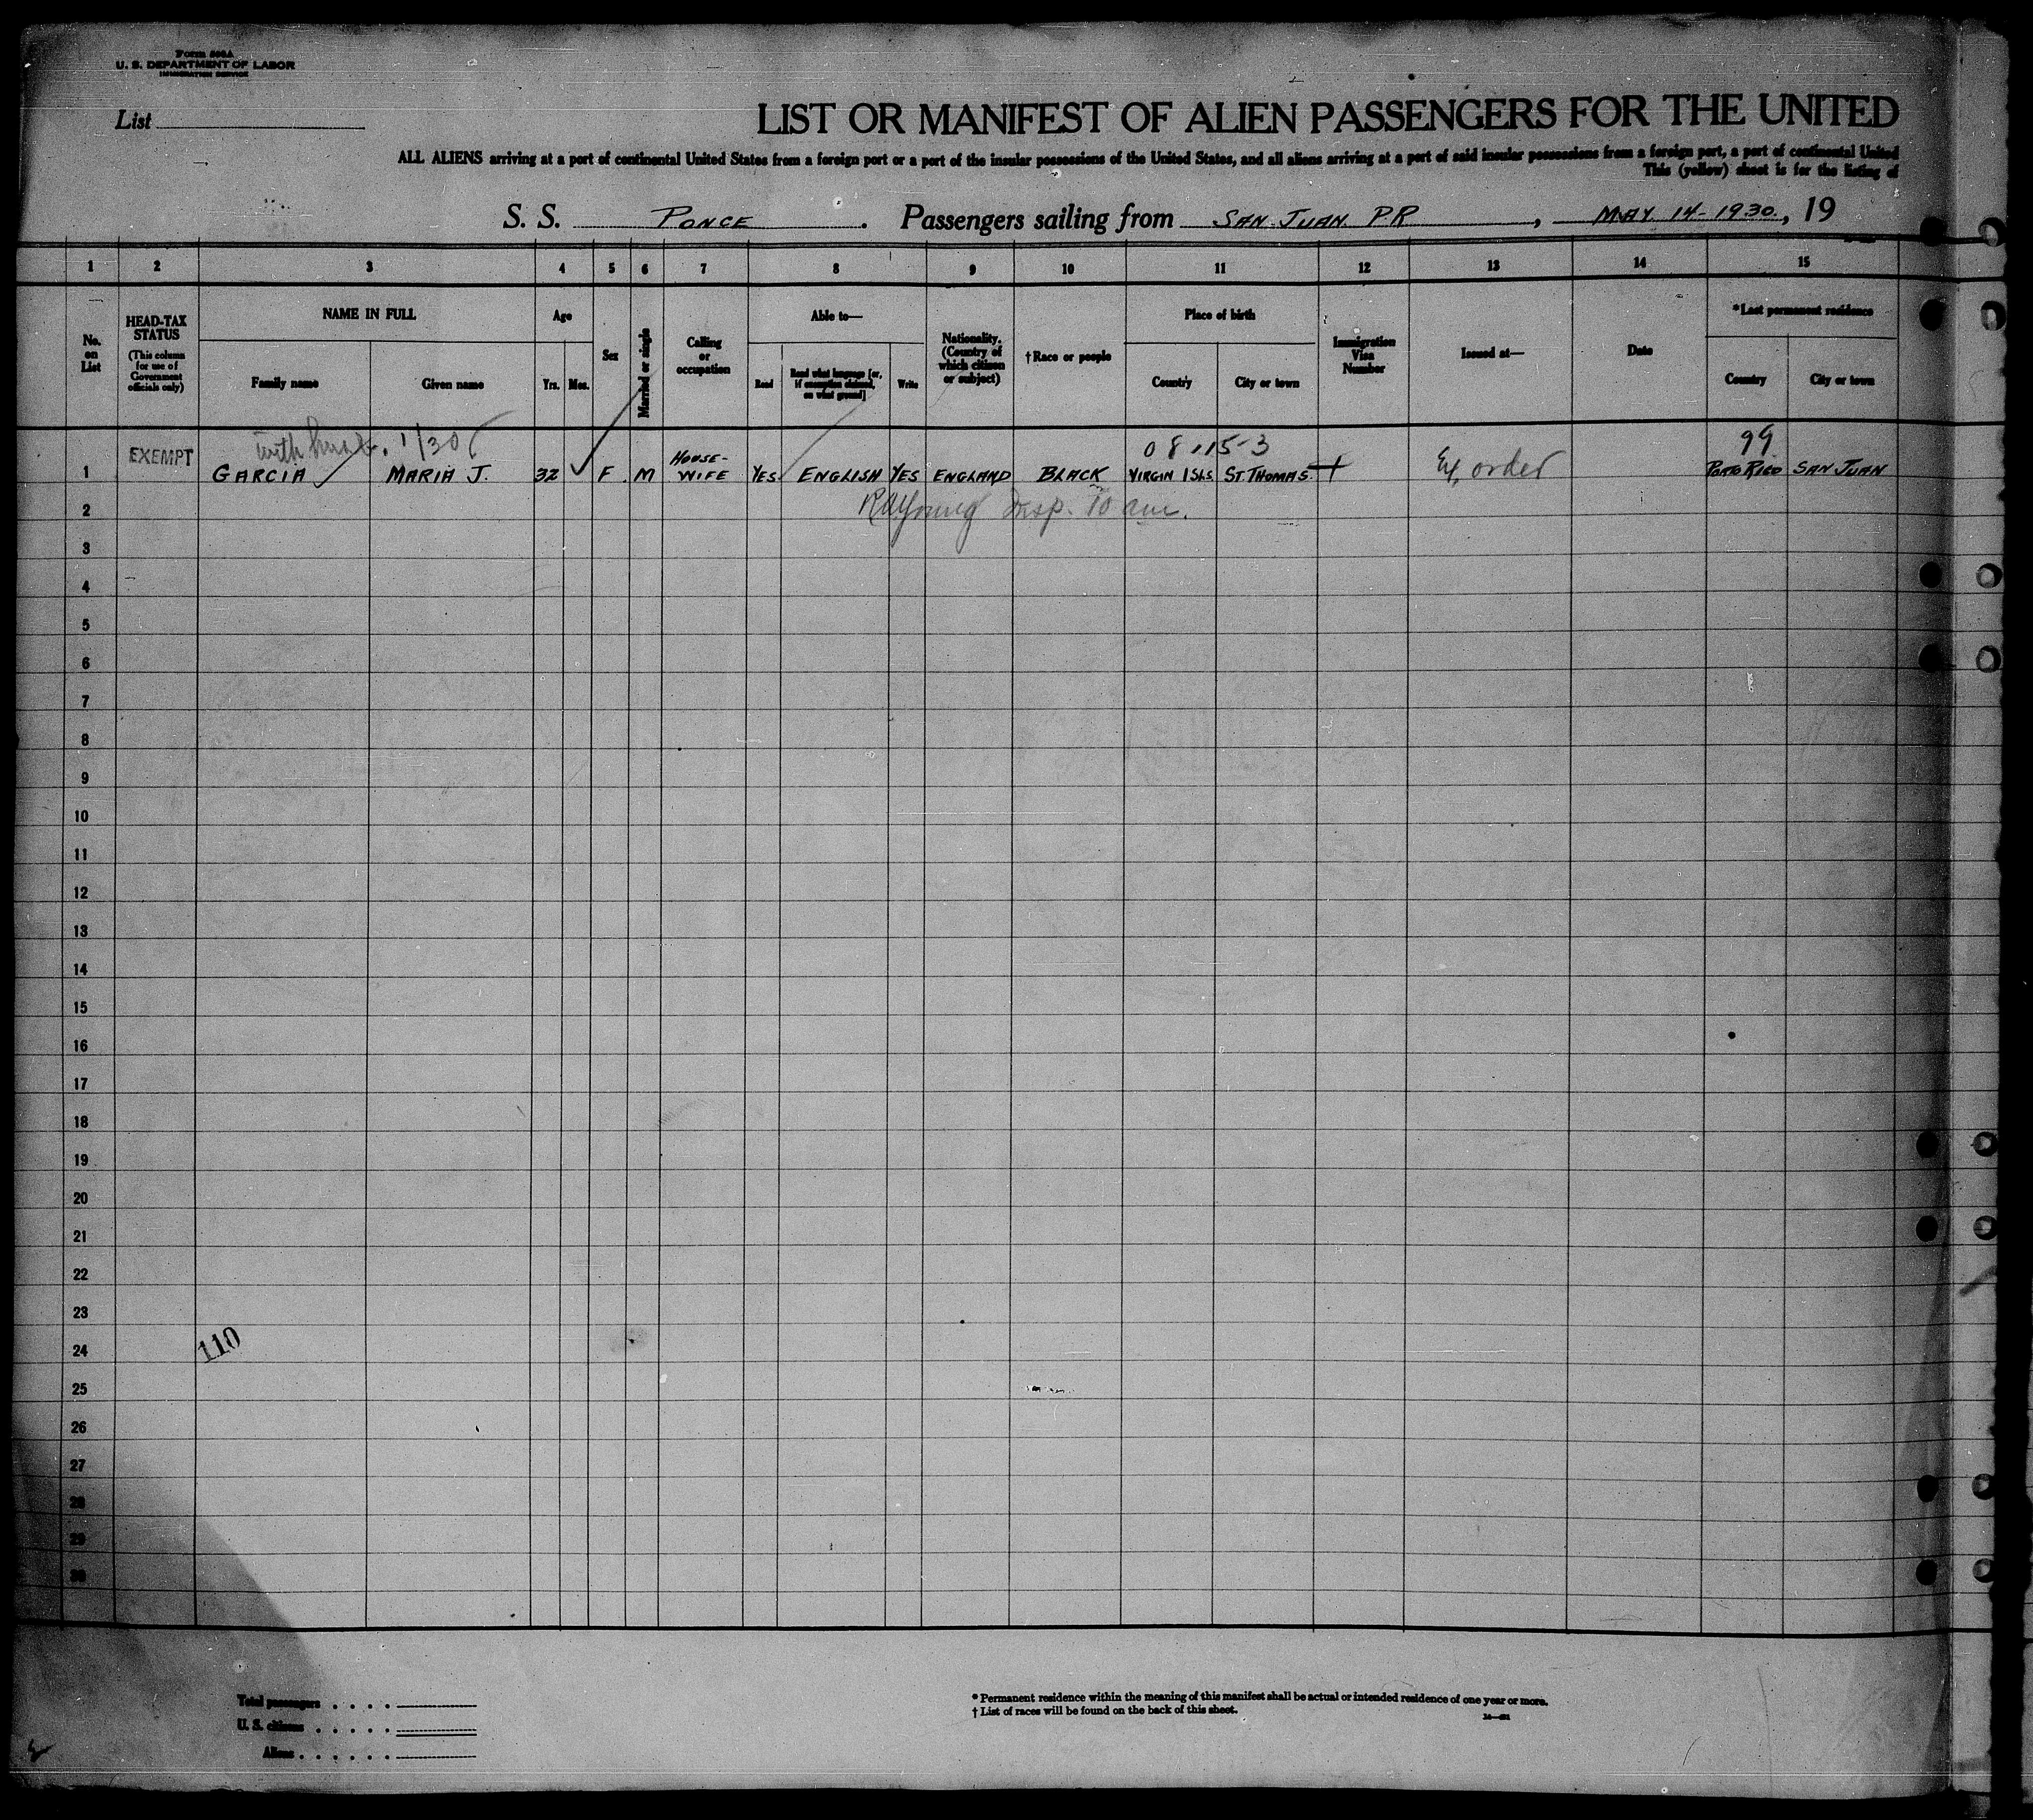 Form 500A
U. S. DEPARTMENT OF LABOR
IMMIGRATION SERVICE
List
LIST OR MANIFEST OF ALIEN PASSENGERS FOR THE UNITED
ALL ALIENS arriving at a port of continental United States from a foreign port or a port of the insular possessions of the United States, and all aliens arriving at a port of said insular possessions from a foreign port, a port of continental United
This (yellow) sheet is for the listing of
S. S. PONCE. Passengers sailing from SAN JUAN. P.R, MAY. 14-1930., 19
1 2 3 4 5 6 7 8 9 10 11 12 13 14 15
No. on List
HEAD-TAX STATUS
(This column for use of Government officials only)
NAME IN FULL
Family name
Given name
Age
Yrs. Mos.
Sex
Married or single
Calling or occupation
Able to—
Read
Read what language [or, if exemption claimed, on what ground]
Write
Nationality. (Country of which citizen or subject)
†Race or people
Place of birth
Country
City or town
Immigration Visa Number
Issued at—
Date
*Last permanent residence
Country
City or town
with 1/30 08.15-3 99
1 EXEMPT GARCIA MARIA J. 32 F. M HOUSE-WIFE YES ENGLISH YES ENGLAND BLACK VIRGIN ISLS. ST. THOMAS. Ex. order PORTO RICO SAN JUAN
2 Young Insp. 10 am.
3
4
5
6
7
8
9
10
11
12
13
14
15
16
17
18
19
20
21
22
23
24 110
25
26
27
28
29
30
Total passengers . . . .
U. S. citizens . . . . .
Aliens . . . . . .
* Permanent residence within the meaning of this manifest shall be actual or intended residence of one year or more.
† List of races will be found on the back of this sheet.